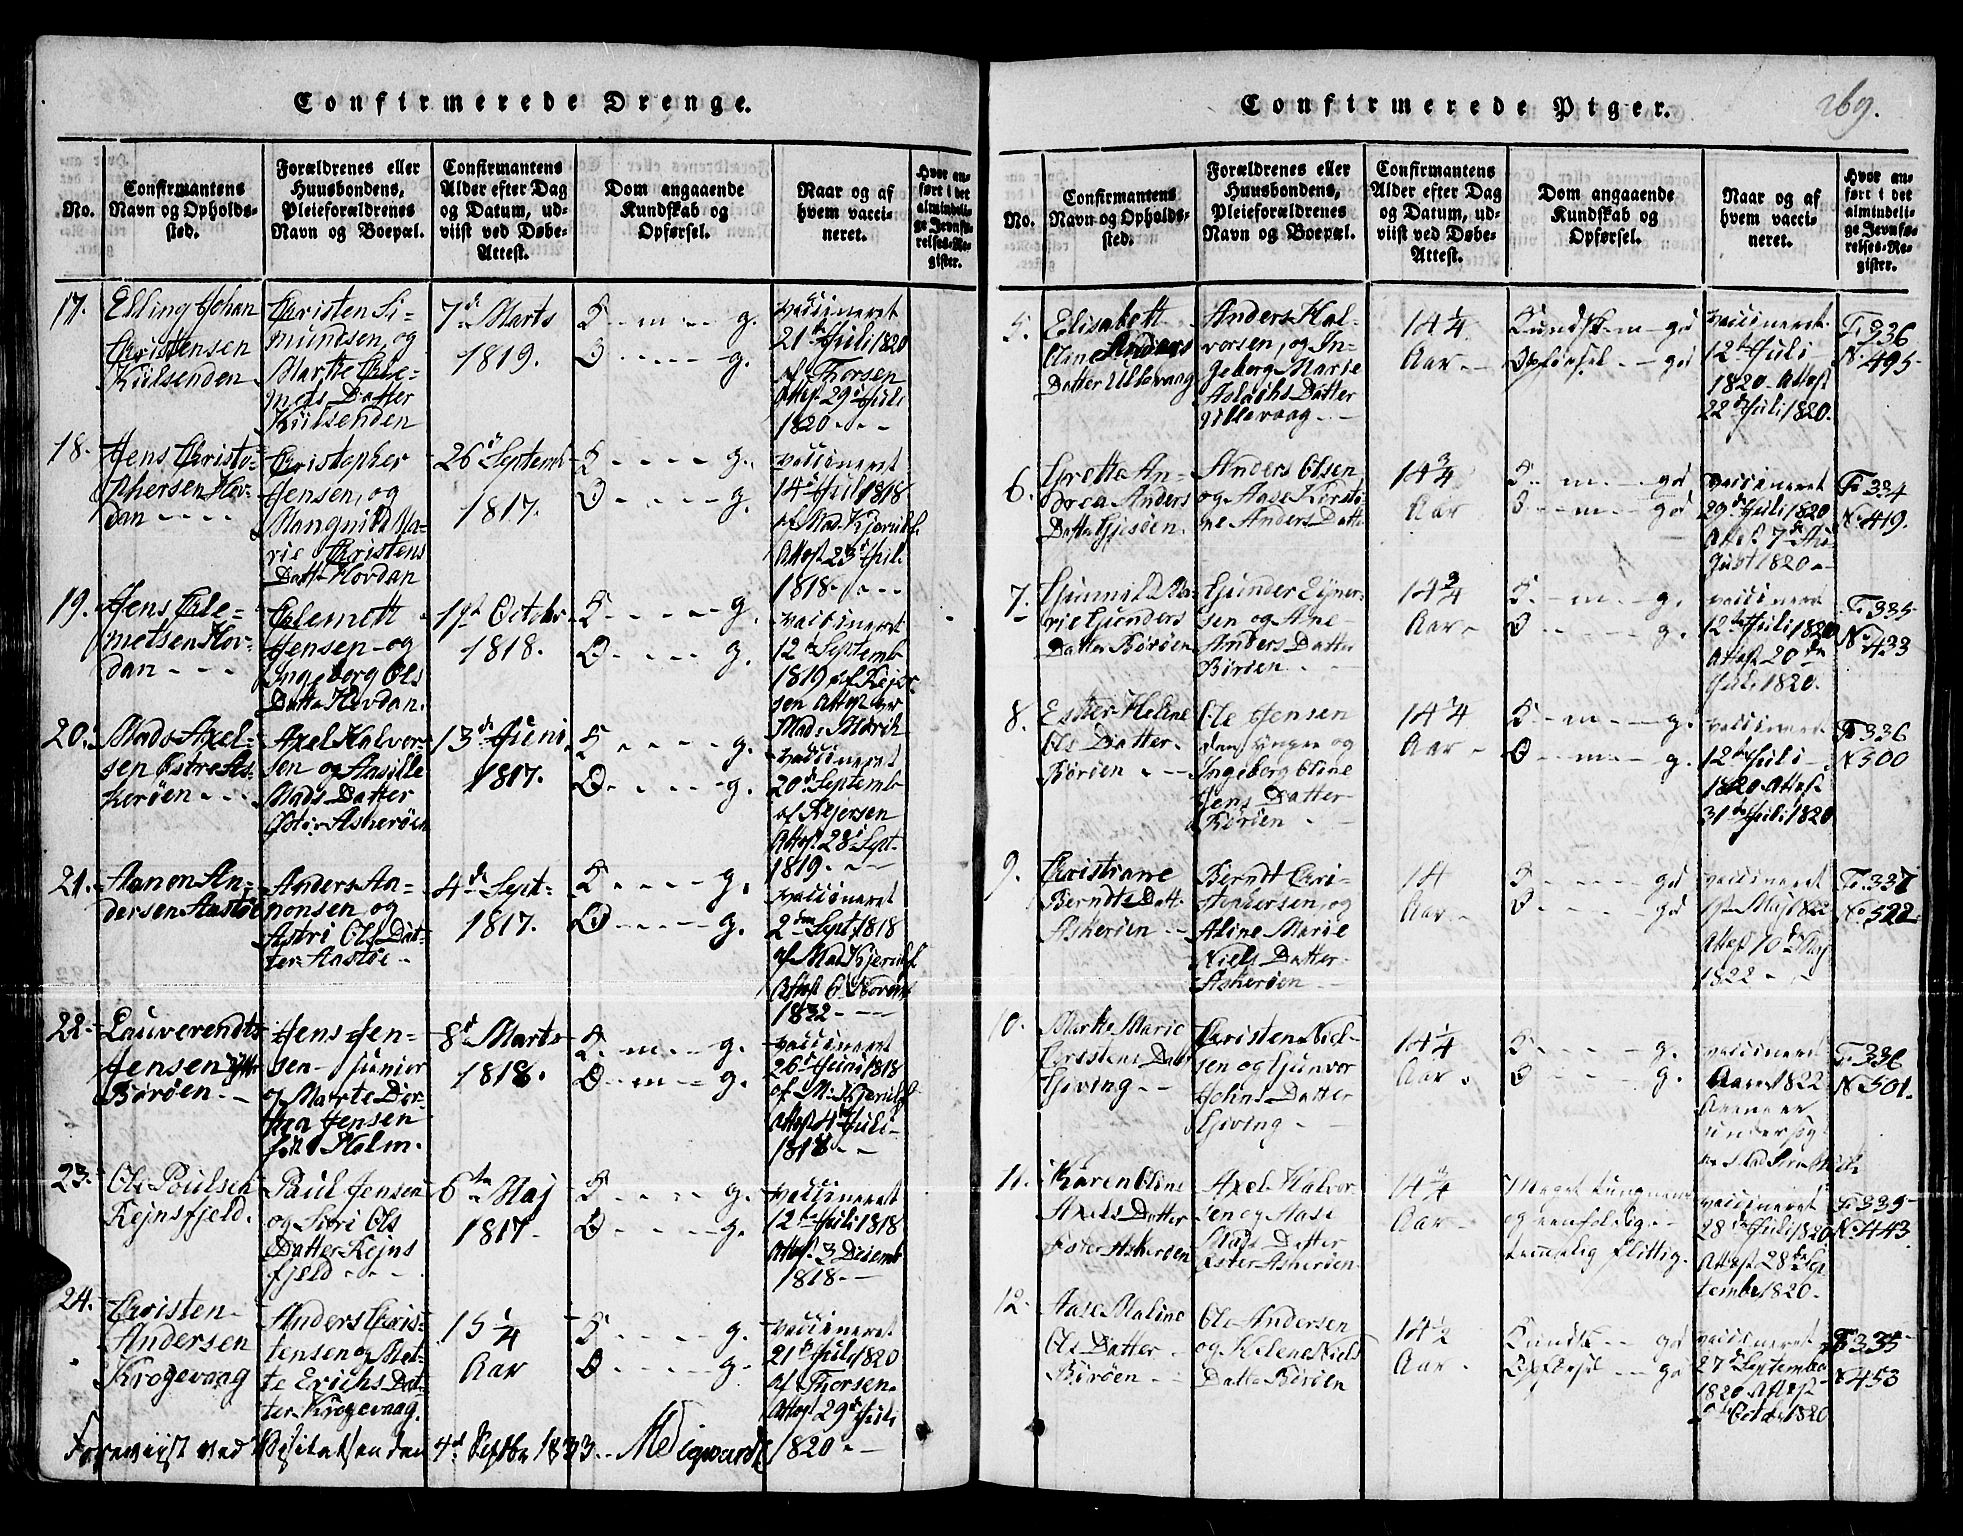 Confirmerede Drenge.
No.
Confirmantens
Navn og Opholds-
sted.
Forældrenes eller
Huusbondens,
Pleieforældrenes
Navn og Boepæl.
Confirmantens
Alder efter Dag
og Datum, ud-
viist ved Døbe-
Attest.
Dom angaaende
Kundskab og
Opførsel.
Naar og af
hvem vacci-
neret.
Hvor an-
ført i det
almindeli-
ge Jevnfø-
relses-Re-
gister.
17.
Elling Johan
Christensen
Kiilsenden
Christen Si-
mundsen, og
Marthe Cle-
mets Datter
Kiilsenden
7de Marts
1819.
K - - m - - g.
O - - - - - g.
vaccineret
21de Juli 1820
af Thorsen
Attest 29de Juli
1820
18.
Jens Christo-
phersen Hov-
dan
Christopher
Jensen, og
Mangnild Ma-
rie Christens
Datter Hovdan
26de Septemb
1817.
K - - - - g.
O - - - - g.
vaccineret
14de Juli 1818
af Mad. Kjerulf
Attest 23de Juli
1818
19.
Jens Cle-
metsen Hov-
dan
Clemett
Jensen og
Ingeborg Ols
Datter Hovdan.
19de Octobr
1818.
K - - - - g.
O - - - - g.
vaccineret
12de Septemb
1819 af Rejer-
sen Attest er
Mads Mørch
20.
Mads Axel-
sen Østre As-
kerøen
Axel Halvor-
sen og Aasille
Mads Datter
Øster Askerøen
13de Juni
1817.
K - - - - g.
O - - - - g.
vaccineret
20de Septemb
af Rejersen
Attest 28de Sept.
1819.
21.
Aanon An-
dersen Aastøe
Anders Aa-
nonsen, og
Astri Ols Dat-
ter Aastøe
4de Sept.
1817.
K - - - - g.
O - - - - g.
vaccineret
2den Sept 1818
af Mad Kjerulf
Attest 6
1832
22.
Lauverendts
Jensen
Børøen.
Jens Jen-
sen Junior
og Marte Dor-
thea Jensen
født Holm.
8de Marts
1818.
K - m - - g.
O - m - - g.
vaccineret
26de Juni 1818
af M. Kjerulf
Attest 4de Juli
1818
23.
Ole Poulsen
Rejnsfjeld.
Paul Jensen
og Siri Ols
Datter Rejns
fjeld
6te Maj
1817.
K - - - - g.
O - - - - g.
vaccineret
12te Juli 1818
Attest 3 Decemb
1818.
24.
Christen
Andersen
Krogevaag
Anders Chris-
tensen og Met-
te Erichs Dat-
ter Krogevaag.
15 1/4
Aar
K - - - - g.
O - - - - g.
vaccineret
21de Juli 1820
af Thorsen.
Attest 29de Juli
1820.
Foreviist ved Visitatsen den 4de Septbr 1833.
Confirmerede Piger.
269.
No.
Confirmantens
Navn og Opholds-
sted.
Forældrenes eller
Huusbondens,
Pleieforældrenes
Navn og Boepæl.
Confirmantens
Alder efter Dag
og Datum, ud-
viist ved Døbe-
Attest.
Dom angaaende
Kundskab og
Opførsel.
Naar og af
hvem vacci-
neret.
Hvor an-
ført i det
almindeli-
ge Jevnfø-
relses-Re-
gister.
5.
Elisabeth
Oline Anders
Datter Ullevaag
Anders Hal-
vorsen, og In-
geborg Marie
Aslachs Datter
Ullevaag
14 1/4
Aar
Kundsk - m - gd
Opførsel - - gd
vaccineret
12te Juli
1820 Attest
22de Juli 1820.
Fo. 336
No. 495
6.
Grethe An-
drea Anders
Datter
Anders Olsen
og Aase Kirsti-
ne Anders Datter
14 3/4
Aar
K - - m - - gd
O - - m - - gd
vaccineret
29de Juli 1820
Attest 7de Au-
gust 1820
Fo. 334
No. 419.
7.
Gunnild Ma-
rie Gunders
Datter Børøen
Gunder Ejner-
sen og Ane
Anders Datter
Børøen
14 3/4
Aar
K - - m - - g.
O - - - - - g.
vaccineret
12te Juli 1820
Attest 20de
Juli 1820.
Fo. 335
No. 433
8.
Esther Heline
Ols Datter
Børøen
Ole Jensen
den yngre og
Ingeborg Oline
Jens Datter
Børøen
14 1/4
Aar
K - - m - - g.
O - - m - - g.
vaccineret
12te Juli
1820 Attest
31de Juli 1820
Fo. 336
No. 500
9.
Christiane
Berndts Datt.
Askerøen
Berndt Chri-
stophersen, og
Aline Marie
Niels Datter
Askerøen
14
Aar
K - - - - gd
O - - - - gd
vaccineret
1ste Maj 1822
Attest 10de Maj
1822
Fo. 337
No. 522
10.
Marthe Marie
Christens Datter
Gjeving
Christen Niel-
sen og Gunvor
Johns Datter
Gjeving
14 1/4
Aar
K - - - - g.
O - - - - g.
vaccineret
Aaret 1822
Fo. 336
No. 501.
11.
Karen Oline
Axels Datter
Øster Askerøen
Axel Halvor
sen og Aase
Mads Datter
Øster Askerøen
14 3/4
Aar
Meget tungnem
og eenfoldig
temmelig flittig.
vaccineret
28de Juli 1820
Attest 28de Sep
tember 1820.
Fo. 335
No. 443.
12.
Aase Maline
Ols Datter
Børøen
Ole Andersen
og Helene Niels
Datter Børøen
14 1/2
Aar
Kundsk - - gd
Opførsel - - gd
vaccineret
27de September
1820 Attest
Octob. 1820
Fo. 335
No. 453